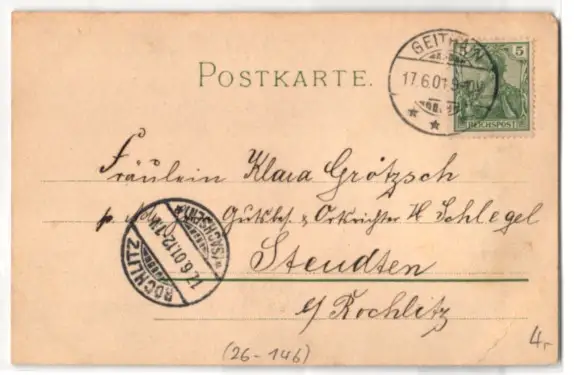 POSTKARTE.
GEITHAIN
17.6.01 9-10V
5
REICHSPOST
Fräulein Klara Grötzsch
p. Gutsbes. & Ortsrichter H Schlegel
Steudten
b/ Rochlitz
ROCHLITZ
17.6.01.12-1N.
*(SACHSEN)*
(26-146)
4.-